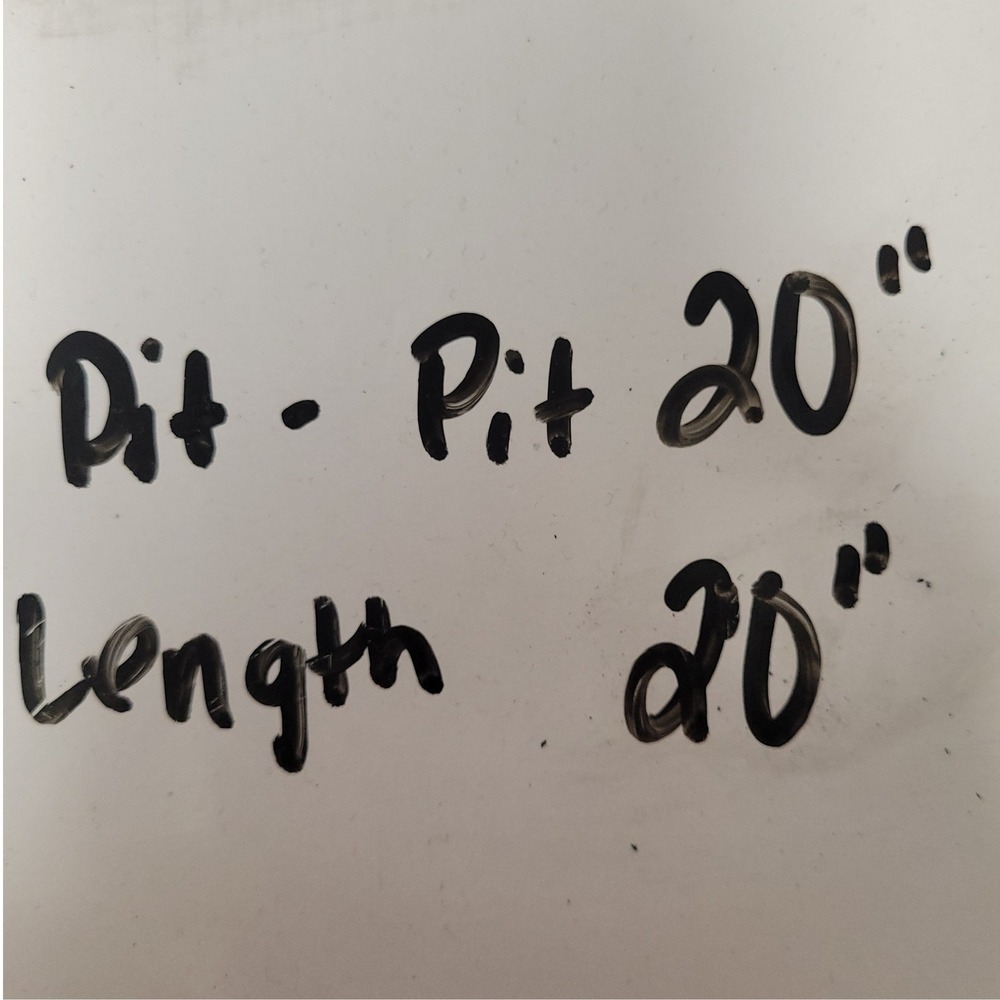 Pit - Pit 20"
Length 20"